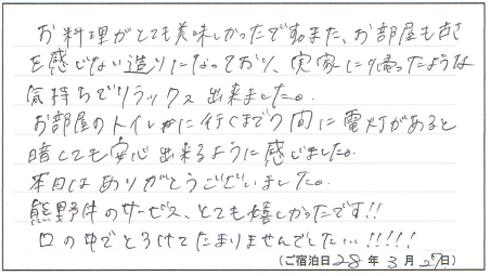 お料理がとても美味しかったです。また、お部屋も古さ
を感じない造りになっており、実家に帰ったような
気持ちでリラックス出来ました。
お部屋のトイレに行くまでの間に電灯があると
暗くても安心出来るように感じました。
本日はありがとうございました。
熊野牛のサービス、とても嬉しかったです!!
口の中でとろけてたまりませんでした…!!!!
(ご宿泊日28年3月27日)